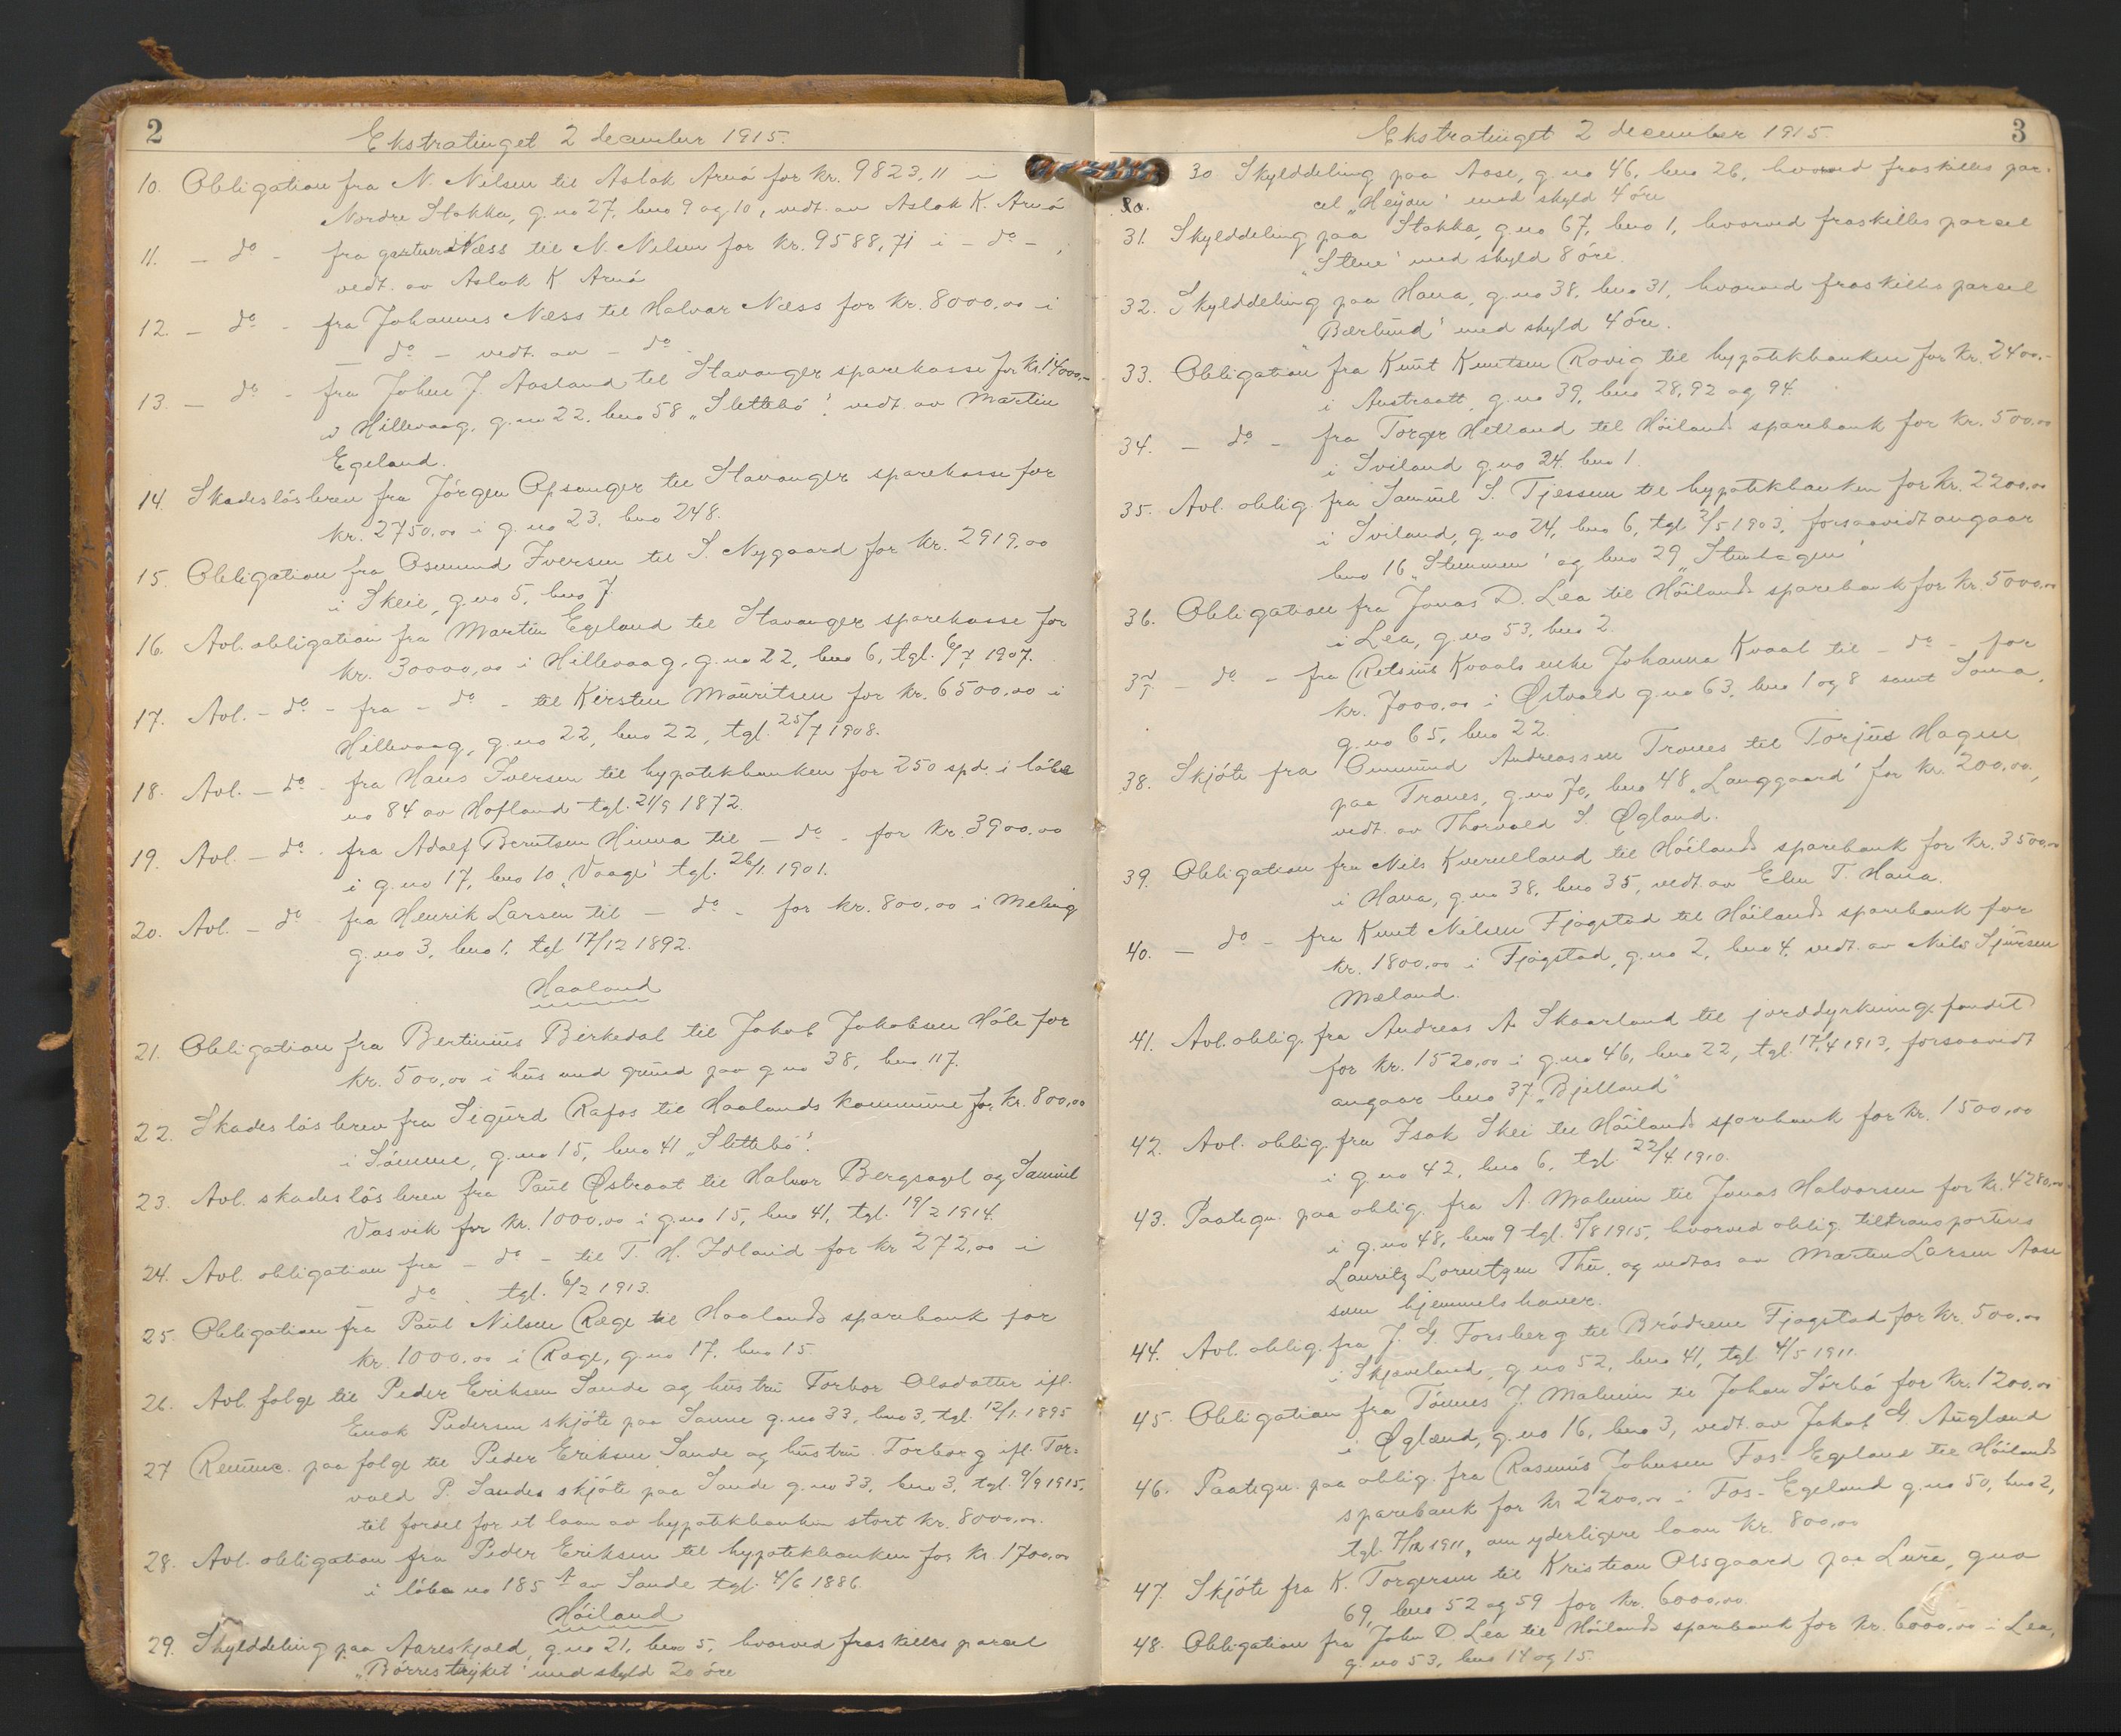 2
Ekstratinget 2 december 1915.
10. Obligation fra N. Nilsen til Aslak Arnö for kr. 9823,11 i
Nordre Stokka, g.no 27, bno 9 og 10, vedt. av Aslak K. Arnö
11. - do - fra gartner Næss til N. Nilsen for kr. 9588,71 i - do - ,
vedt. av Aslak K Arnö
12. - do - fra Johannes Næss til Halvar Næss for kr. 8000,00 i
- do - vedt. av - do -
13. - do - fra Johan J. Aasland til Stavanger sparekasse for kr. 14000,-
i Hillevaag, g.no 22, bno 58 „Slettebö", vedt. av Martin
Egeland.
14. Skadeslösbrev fra Jörgen Opsanger til Stavanger sparekasse for
kr. 2750,00 i g.no 23, bno 248.
15. Obligation fra Osmund Iversen til S. Nygaard for kr. 2919,00
i Skeie, g.no 5, bno 7.
16. Avl. obligation fra Martin Egeland til Stavanger sparekasse for
kr. 30000,00 i Hillevaag, g.no 22, bno 6, tgl. 6/7 1907.
17. Avl. - do - fra - do - til Kirsten Mauritsen for kr. 6500,00 i
Hillevaag, g.no 22, bno 22, tgl. 25/7 1908.
18. Avl. - do - fra Hans Iversen til hypotekbanken for 250 spd. i löbe
no 84 av Hofland tgl. 24/9 1872.
19. Avl. - do - fra Adolf Berntsen Hinna til - do - for kr. 3900,00
i g.no 17, bno 10 „Vaage" tgl. 26/1 1901.
20. Avl. - do - fra Henrik Larsen til - do - for kr. 800,00 i Meling
g.no 3, bno 1, tgl 17/12 1892.
Haaland
21. Obligation fra Bertinius Birkedal til Jakob Jakobsen Höle for
kr. 500,00 i hus med grund paa g.no 38, bno 117.
22. Skadeslösbrev fra Sigurd Rafos til Haalands kommune for kr. 800,00
i Sömme, g.no 15, bno 41 „Slettebö".
23. Avl. skadeslösbrev fra Paul Østraat til Halvor Bergsagel og Samuel
Vasvik for kr. 1000,00 i g.no 15, bno 41, tgl. 19/2 1914.
24. Avl. obligation fra - do - til T. H. Idland for kr 272,00 i
- do - tgl. 6/2 1913.
25. Obligation fra Paul Nilsen Ræge til Haalands sparebank for
kr. 1000,00 i Ræge, g.no 17, bno 15.
26. Avl. folge til Peder Eriksen Sande og hustru Torbor Olsdatter ifl.
Enok Pedersen skjöte paa Sanne g.no 33, bno 3, tgl. 12/1 1895
27 Renunc. paa folge til Peder Eriksen Sande og hustru Torborg ifl. Tor=
vald P. Sandes skjöte paa Sande g.no 33, bno 3, tgl. 9/9 1915,
til fordel for et laan av hypotekbanken stort kr. 8000,00.
28. Avl. obligation fra Peder Eriksen til hypotekbanken for kr. 1700,00
i löbeno 185 A av Sande tgl. 4/6 1886.
Höiland
29. Skylddeling paa Aareskjold, g.no 21, bno 5, hvorved fraskilles parcel
„Börrestrýket" med skyld 20 öre
3
Ekstratinget 2 december 1915.
30 Skylddeling paa Aase, g.no 46, bno 26, hvorved fraskilles par-
cel „Heijan" med skyld 4 öre
31. Skylddeling paa Stokka, g.no 67, bno 1, hvorved fraskilles parcel
„Stene" med skyld 8 öre.
32. Skylddeling paa Hana, g.no 38, bno 31, hvorved fraskilles parsel
„Bærlund" med skyld 4 öre.
33. Obligation fra Knut Knutsen Rovig til hypotekbanken for kr. 2400,-
i Austraatt, g.no 39, bno 28, 92 og 94.
34. - do - fra Torger Hetland til Höilands sparebank for kr. 500,00
i Sviland g.no 24 bno 1.
35. Avl. oblig. fra Samuel S. Tjessem til hypotekbanken for kr. 2200,00
i Sviland, g.no 24, bno 6, tgl 2/5 1903, forsaavidt angaar
bno 16 „Stemmen" og bno 29 „Stenhagen"
36. Obligation fra Jonas D. Lea til Höilands sparebank for kr. 5000,00
i Lea, g.no 53, bno 2.
37 - do - fra Retsius Kvaals enke Johanna Kvaal til - do - for
kr. 7000,00 i Østvold g.no 63, bno 1 og 8 samt Soma,
g.no 65, bno 22.
38. Skjöte fra Ommund Andreassen Trones til Torjus Hagen
paa Trones, g.no 70, bno 48 „Langgaard" for kr. 200,00,
vedt. av Thorvald S. Øgland.
39. Obligation fra Nils Kvernland til Höilands sparebank for kr. 3500,00
i Hana, g.no 38, bno 35, vedt. av Elen T. Hana.
40. - do - fra Knut Nilsen Fjogstad til Höilands sparebank for
kr. 1800,00 i Fjogstad, g.no 2, bno 4, vedt. av Nils Sjursen
Mæland.
41. Avl. oblig. fra Andreas A. Skaarland til jorddyrkningsfondet
for kr. 1520,00 i g.no 46, bno 22, tgl. 17/4 1913, forsaavidt
angaar bno 37 „Bjelland"
42. Avl. oblig. fra Isak Skei til Höilands sparebank for kr. 1500,00
i g.no 42, bno 6, tgl. 22/4 1910.
43. Paategn. paa oblig. fra A. Malmin til Jonas Halvorsen for kr. 4280,00
i g.no 48, bno 9 tgl. 5/8 1915, hvorved oblig. tiltransporteres
Lauritz Lorentzen Thu, og vedtas av Marten Larsen Aase
som hjemmelshaver.
44. Avl. oblig. fra J. G. Forsberg til Brödrene Fjogstad for kr. 500,00
i Skjæveland, g.no 52, bno 41, tgl. 4/5 1911.
45. Obligation fra Tönnes J. Malmin til Johan Sörbö for kr. 1200,00
i Øglænd, g.no 16, bno 3, vedt. av Jakob G. Auglænd
46. Paategn. paa oblig. fra Rasmus Johnsen Fos-Egeland til Höilands
sparebank for kr 2200,00 i Fos-Egeland g.no 50, bno 2,
tgl. 7/12 1911, om yderligere laan kr. 800,00
47. Skjöte fra K. Torgersen til Kristian Olsgaard paa Lura, g.no
69, bno 52 og 59 for kr. 6000,00.
48. Obligation fra John D. Lea til Höilands sparebank for kr. 6000,00 i Lea,
g.no 53, bno 14 og 15.